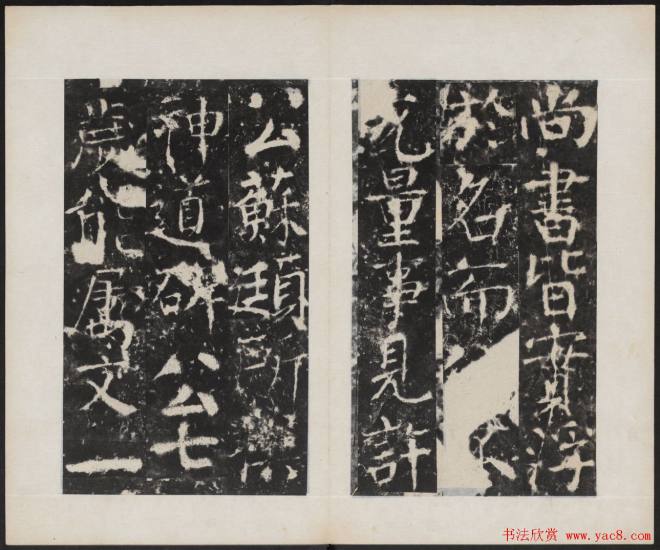 尚書皆實浮
於名而
元量事見許
公蘇頲所
神道碑公公七
歲能属文一
书法欣赏 www.yac8.com